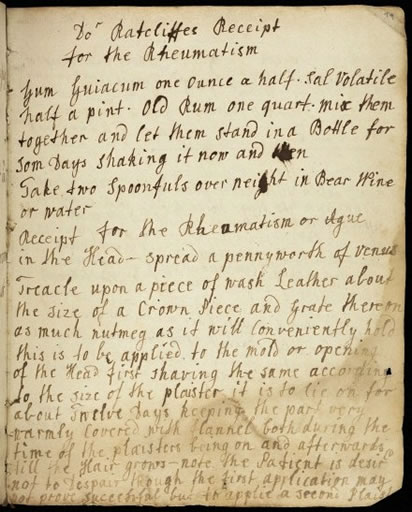 Dor Ratcliffes Receipt
for the Rheumatism
Gum Guiacum one Ounce a half. Sal Volatile
half a pint. Old Rum one quart. mix them
together and let them stand in a Bottle for
som Days shaking it now and then
Take two Spoonfuls over neight in Bear Wine
or water
Receipt for the Rheumatism or Ague
in the Head - spread a pennyworth of Venus
Treacle upon a piece of wash Leather about
the size of a Crown Piece and grate thereon
as much nutmeg as it will conveniently hold
this is to be applied to the mold or opening
of the Head first shaving the same according
to the size of the plaister it is to lie on for
about Twelve Days keeping the part very
warmly Covered with flannel both during the
time of the plaisters being on and afterwards
till the Hair grows - note the Patient is desird
not to Despair though the first application may
not prove successful but to applie a second Plaist